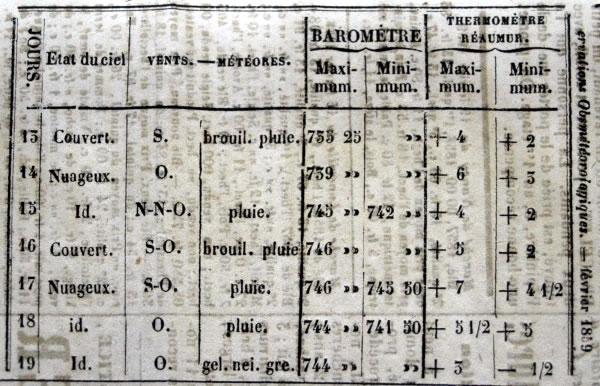 JOURS. Etat du ciel VENTS. — MÉTÉORES. BAROMÈTRE THERMOMÈTRE RÉAUMUR.
Maxi-mum. Mini-mum. Maxi-mum. Mini-mum.
13 Couvert. S. brouil. pluie. 735 25 » + 4 + 2
14 Nuageux. O. 739 » + 6 + 3
15 Id. N-N-O. pluie. 745 » 742 » + 4 + 2
16 Couvert. S-O. brouil. pluie 746 » + 5 + 2
17 Nuageux. S-O. pluie. 746 » 745 50 + 7 + 4 1/2
18 id. O. pluie. 744 » 741 50 + 5 1/2 + 5
19 Id. O. gel. nei. gre. 744 » + 3 — 1/2
février 1839